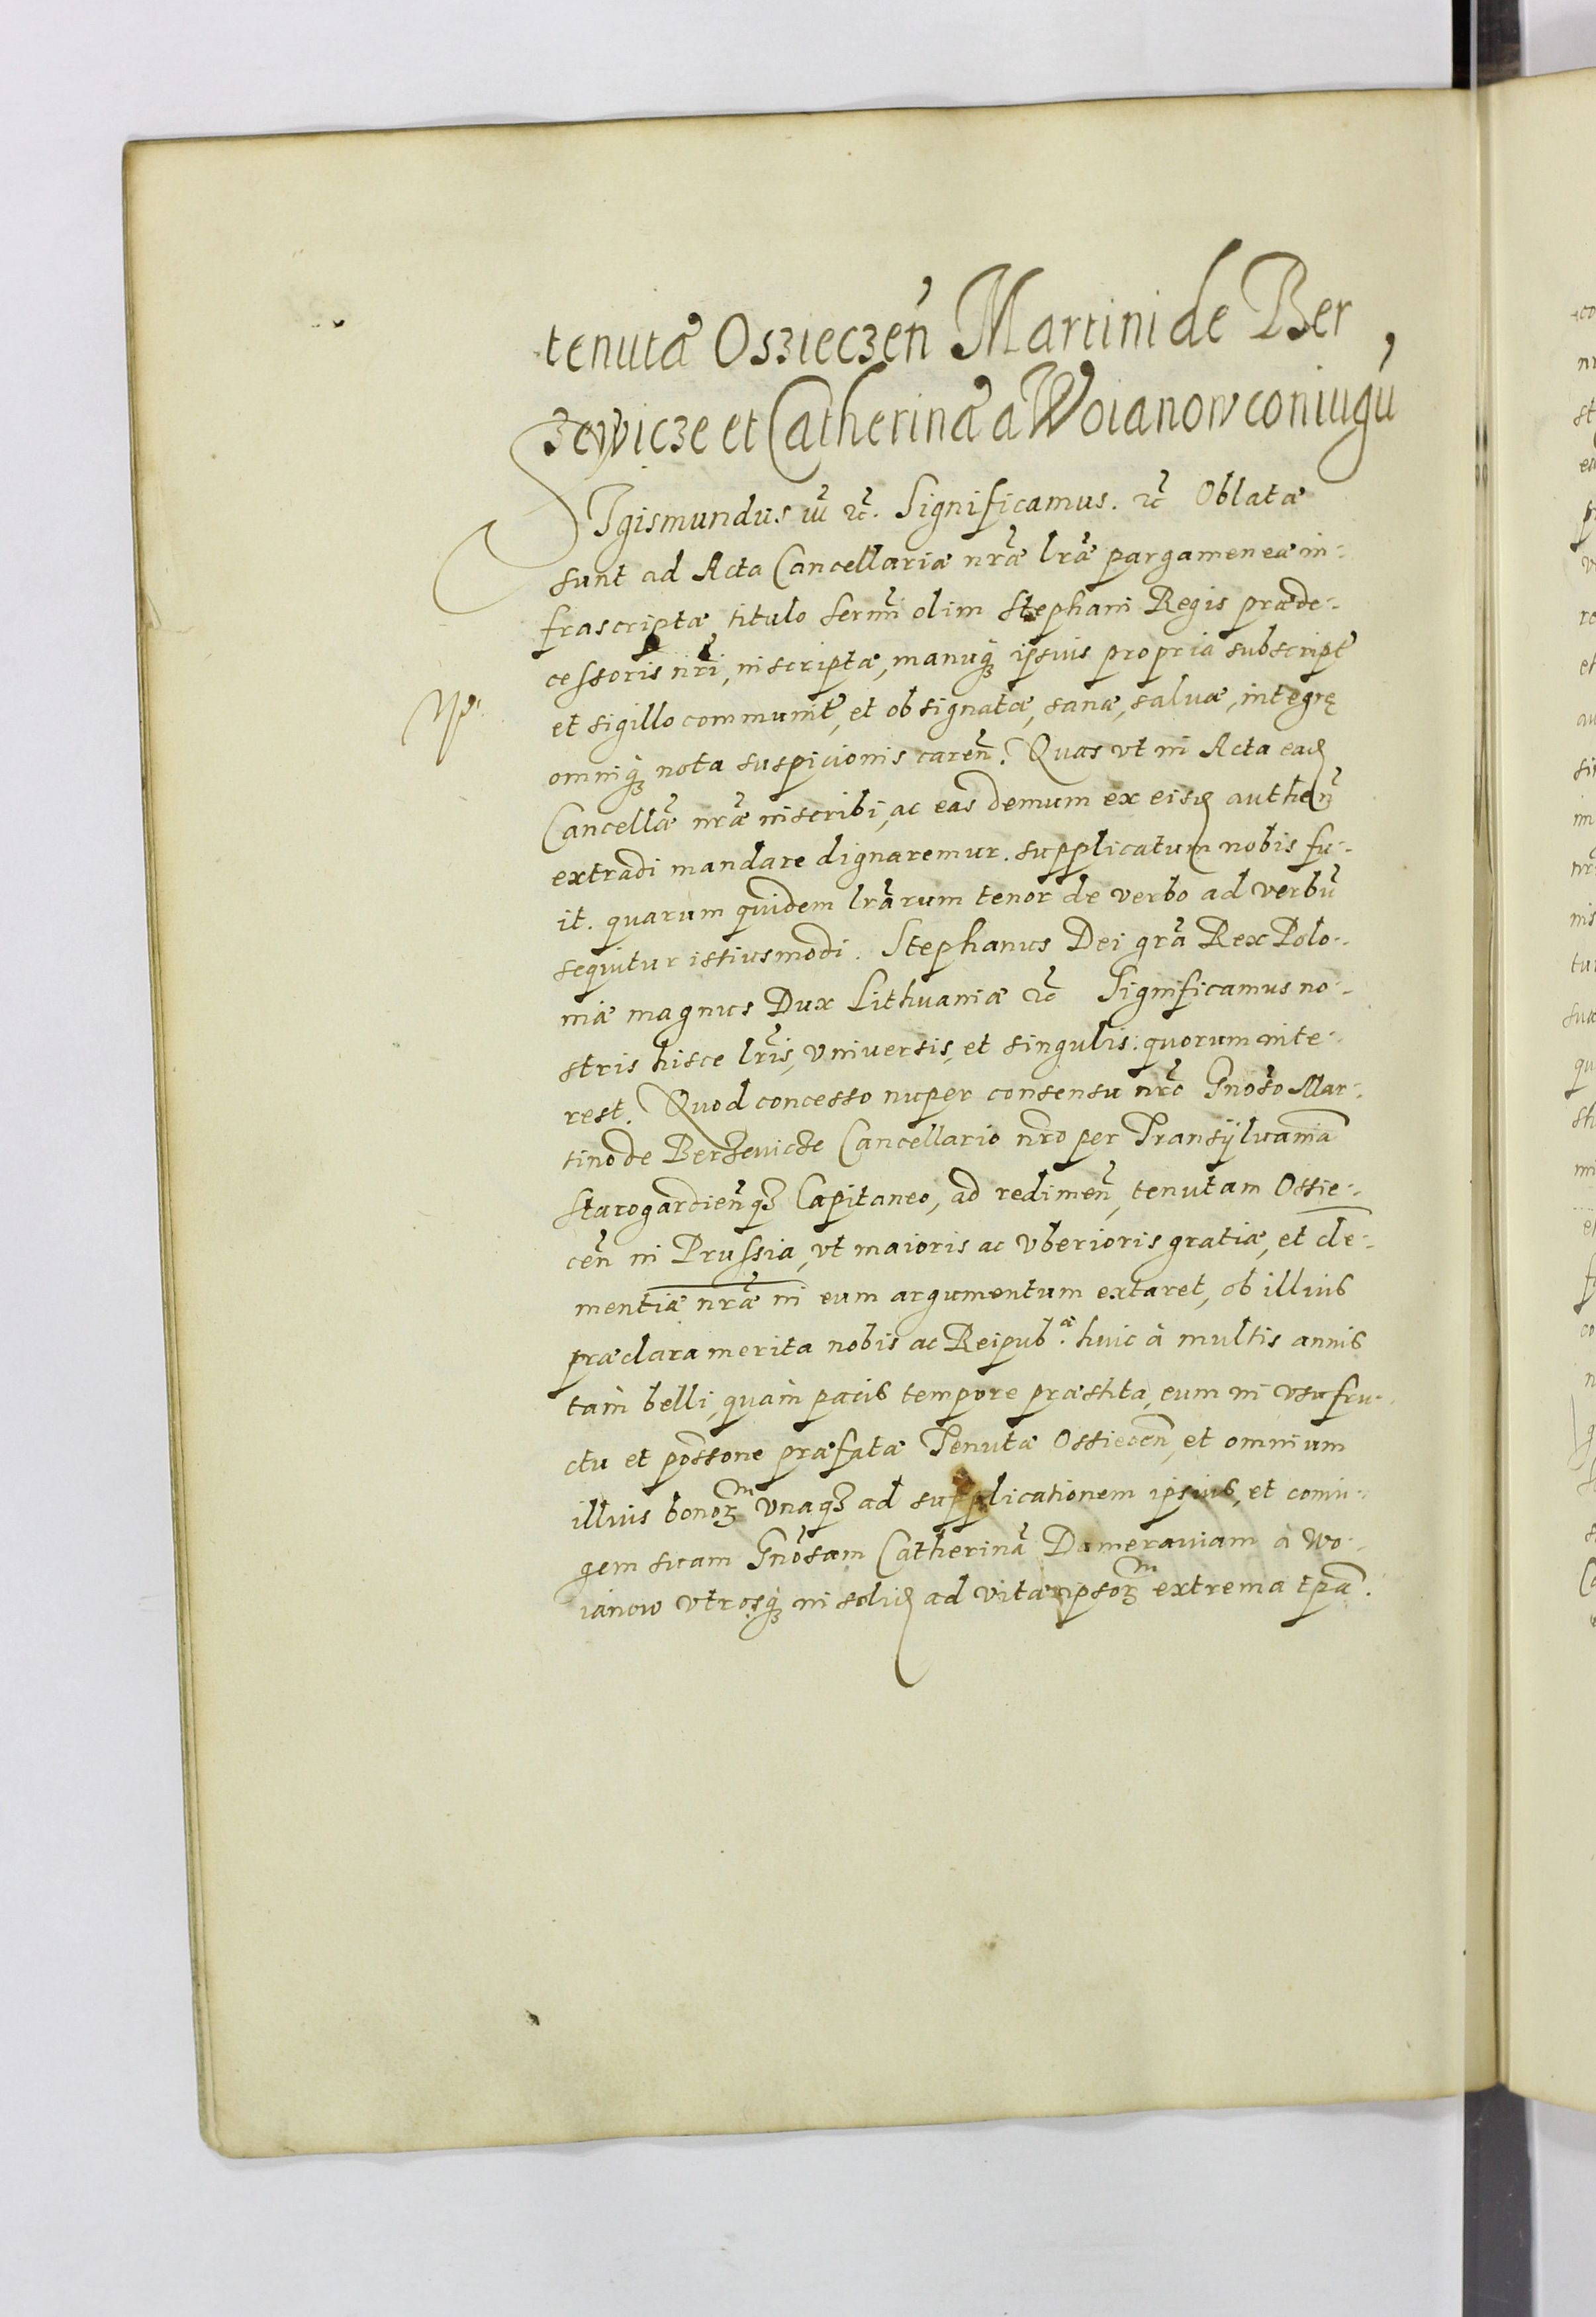 tenutã Oszieczeñ Martini de Ber
zewicze et Catherinã a Woianow coniugũ
SIgismundus ⁊c̃. Significamus. ⁊c̃ Oblatæ
sunt ad Acta Cancellariæ nr̃æ lr̃æ pargameneæ in-
frascriptæ titulo Serm̃i olim Stephani Regis præde-
cessoris nr̃i, inscriptæ, manuq̃ȝ ipsius propria subscript̃
et sigillo communit̃, et obsignatæ, sanæ, salvæ, integrę
omniq̃ȝ nota suspicionis careñ. Quas vt in Acta eadē
Cancellæ̃ nr̃æ inscribi, ac eas demum ex eisdē autheñ
extradi mandare dignaremur. supplicatum nobis fu-
it. quarum quidem lr̃arum tenor de verbo ad verbũ
sequitur istiusmodi. Stephanus Dei gr̃a Rex Polo-
niæ magnus Dux Lithuaniæ ⁊c̃ Significamus no-
stris hisce lr̃is, vniversis, et singulis: quorum inte-
rest. Quod concesso nuper consensu nr̃o Gnoso Mar-
tino de Berzevicze Cancellario nr̃o per Transÿlvaniã
Starogardieñqȝ Capitaneo, ad redimeñ, tenutam Ossie-
ceñ in Prussia, vt maioris ac vberioris gratiæ, et cle-
mentiæ nr̃æ in eum argumentum extaret, ob illius
præclara merita nobis ac Reipub.æ huic à multis annis
tam belli, quàm pacis tempore præstita, eum in vsufru-
ctu et poss̃one præfatæ Tenutæ Ossieceñ, et omnium
illius bonoꝝm vnaqȝ ad supplicationem ipsius, et coniu-
gem suam Gno̅sam Catherinã Dameraviam à Wo-
ianow vtrosq̃ȝ in solidē ad vitæ ipsoꝝm extrema tpã.